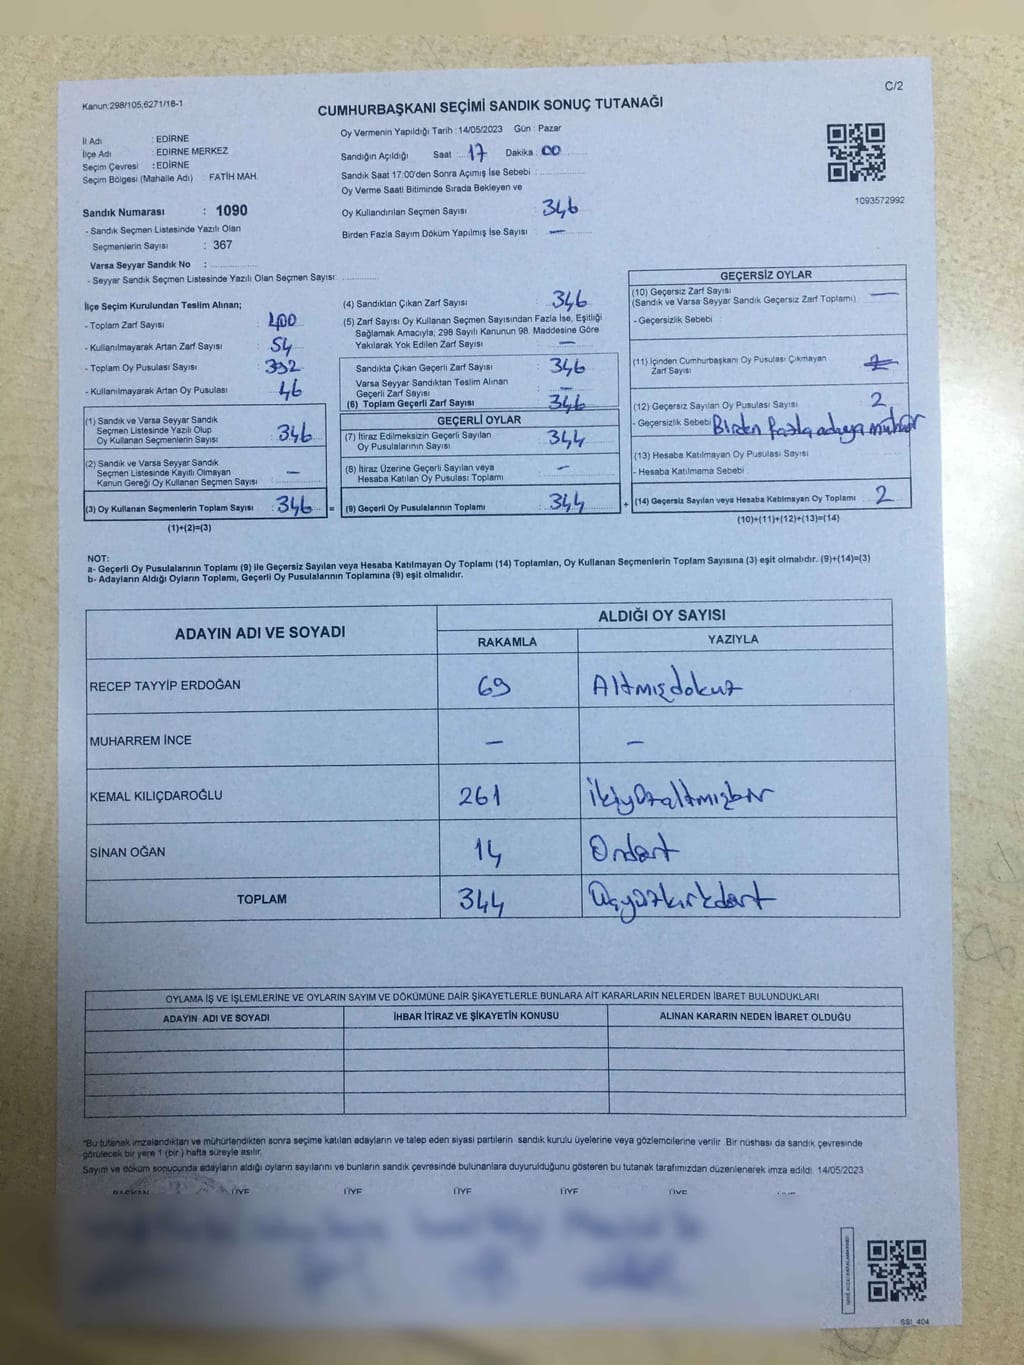 C/2
Kanun:298/105,6271/18-1
CUMHURBAŞKANI SEÇİMİ SANDIK SONUÇ TUTANAĞI
İl Adı : EDİRNE
İlçe Adı : EDİRNE MERKEZ
Seçim Çevresi : EDİRNE
Seçim Bölgesi (Mahalle Adı) : FATİH MAH.
Oy Vermenin Yapıldığı Tarih :14/05/2023 Gün : Pazar
Sandığın Açıldığı Saat : 17 Dakika : 00
Sandık Saat 17:00'den Sonra Açımış İse Sebebi :
Oy Verme Saati Bitiminde Sırada Bekleyen ve
Oy Kullandırılan Seçmen Sayısı : 346
Birden Fazla Sayım Döküm Yapılmış İse Sayısı : —
1093572992
Sandık Numarası : 1090
- Sandık Seçmen Listesinde Yazılı Olan
Seçmenlerin Sayısı : 367
Varsa Seyyar Sandık No :
- Seyyar Sandık Seçmen Listesinde Yazılı Olan Seçmen Sayısı:
İlçe Seçim Kurulundan Teslim Alınan;
- Toplam Zarf Sayısı : 400
- Kullanılmayarak Artan Zarf Sayısı : 54
- Toplam Oy Pusulası Sayısı : 392
- Kullanılmayarak Artan Oy Pusulası : 46
(1) Sandık ve Varsa Seyyar Sandık
Seçmen Listesinde Yazılı Olup
Oy Kullanan Seçmenlerin Sayısı : 346
(2) Sandık ve Varsa Seyyar Sandık
Seçmen Listesinde Kayıtlı Olmayan
Kanun Gereği Oy Kullanan Seçmen Sayısı : —
(3) Oy Kullanan Seçmenlerin Toplam Sayısı : 346
(1)+(2)=(3)
(4) Sandıktan Çıkan Zarf Sayısı : 346
(5) Zarf Sayısı Oy Kullanan Seçmen Sayısından Fazla İse, Eşitliği
Sağlamak Amacıyla; 298 Sayılı Kanunun 98. Maddesine Göre
Yakılarak Yok Edilen Zarf Sayısı : —
Sandıkta Çıkan Geçerli Zarf Sayısı : 346
Varsa Seyyar Sandıktan Teslim Alınan
Geçerli Zarf Sayısı : —
(6) Toplam Geçerli Zarf Sayısı : 346
GEÇERLİ OYLAR
(7) İtiraz Edilmeksizin Geçerli Sayılan
Oy Pusulalarının Sayısı : 344
(8) İtiraz Üzerine Geçerli Sayılan veya
Hesaba Katılan Oy Pusulası Toplamı : —
= (9) Geçerli Oy Pusulalarının Toplamı : 344
GEÇERSİZ OYLAR
(10) Geçersiz Zarf Sayısı
(Sandık ve Varsa Seyyar Sandık Geçersiz Zarf Toplamı) : —
- Geçersizlik Sebebi
(11) İçinden Cumhurbaşkanı Oy Pusulası Çıkmayan
Zarf Sayısı
(12) Geçersiz Sayılan Oy Pusulası Sayısı : 2
- Geçersizlik Sebebi Birden fazla adaya mühür
(13) Hesaba Katılmayan Oy Pusulası Sayısı
- Hesaba Katılmama Sebebi
+ (14) Geçersiz Sayılan veya Hesaba Katılmayan Oy Toplamı : 2
(10)+(11)+(12)+(13)=(14)
NOT:
a- Geçerli Oy Pusulalarının Toplamı (9) ile Geçersiz Sayılan veya Hesaba Katılmayan Oy Toplamı (14) Toplamları, Oy Kullanan Seçmenlerin Toplam Sayısına (3) eşit olmalıdır. (9)+(14)=(3)
b- Adayların Aldığı Oyların Toplamı, Geçerli Oy Pusulalarının Toplamına (9) eşit olmalıdır.
ADAYIN ADI VE SOYADI
ALDIĞI OY SAYISI
RAKAMLA YAZIYLA
RECEP TAYYİP ERDOĞAN 69 Altmışdokuz
MUHARREM İNCE — —
KEMAL KILIÇDAROĞLU 261 ikiyüzaltmışbir
SİNAN OĞAN 14 Ondört
TOPLAM 344 üçyüzkırkdört
OYLAMA İŞ VE İŞLEMLERİNE VE OYLARIN SAYIM VE DÖKÜMÜNE DAİR ŞİKAYETLERLE BUNLARA AİT KARARLARIN NELERDEN İBARET BULUNDUKLARI
ADAYIN ADI VE SOYADI İHBAR İTİRAZ VE ŞİKAYETİN KONUSU ALINAN KARARIN NEDEN İBARET OLDUĞU
*Bu tutanak imzalandıktan ve mühürlendikten sonra seçime katılan adayların ve talep eden siyasi partilerin sandık kurulu üyelerine veya gözlemcilerine verilir. Bir nüshası da sandık çevresinde
görülecek bir yere 1 (bir) hafta süreyle asılır.
Sayım ve döküm sonucunda adayların aldığı oyların sayılarını ve bunların sandık çevresinde bulunanlara duyurulduğunu gösteren bu tutanak tarafımızdan düzenlenerek imza edildi. 14/05/2023
BAŞKAN ÜYE ÜYE ÜYE ÜYE ÜYE